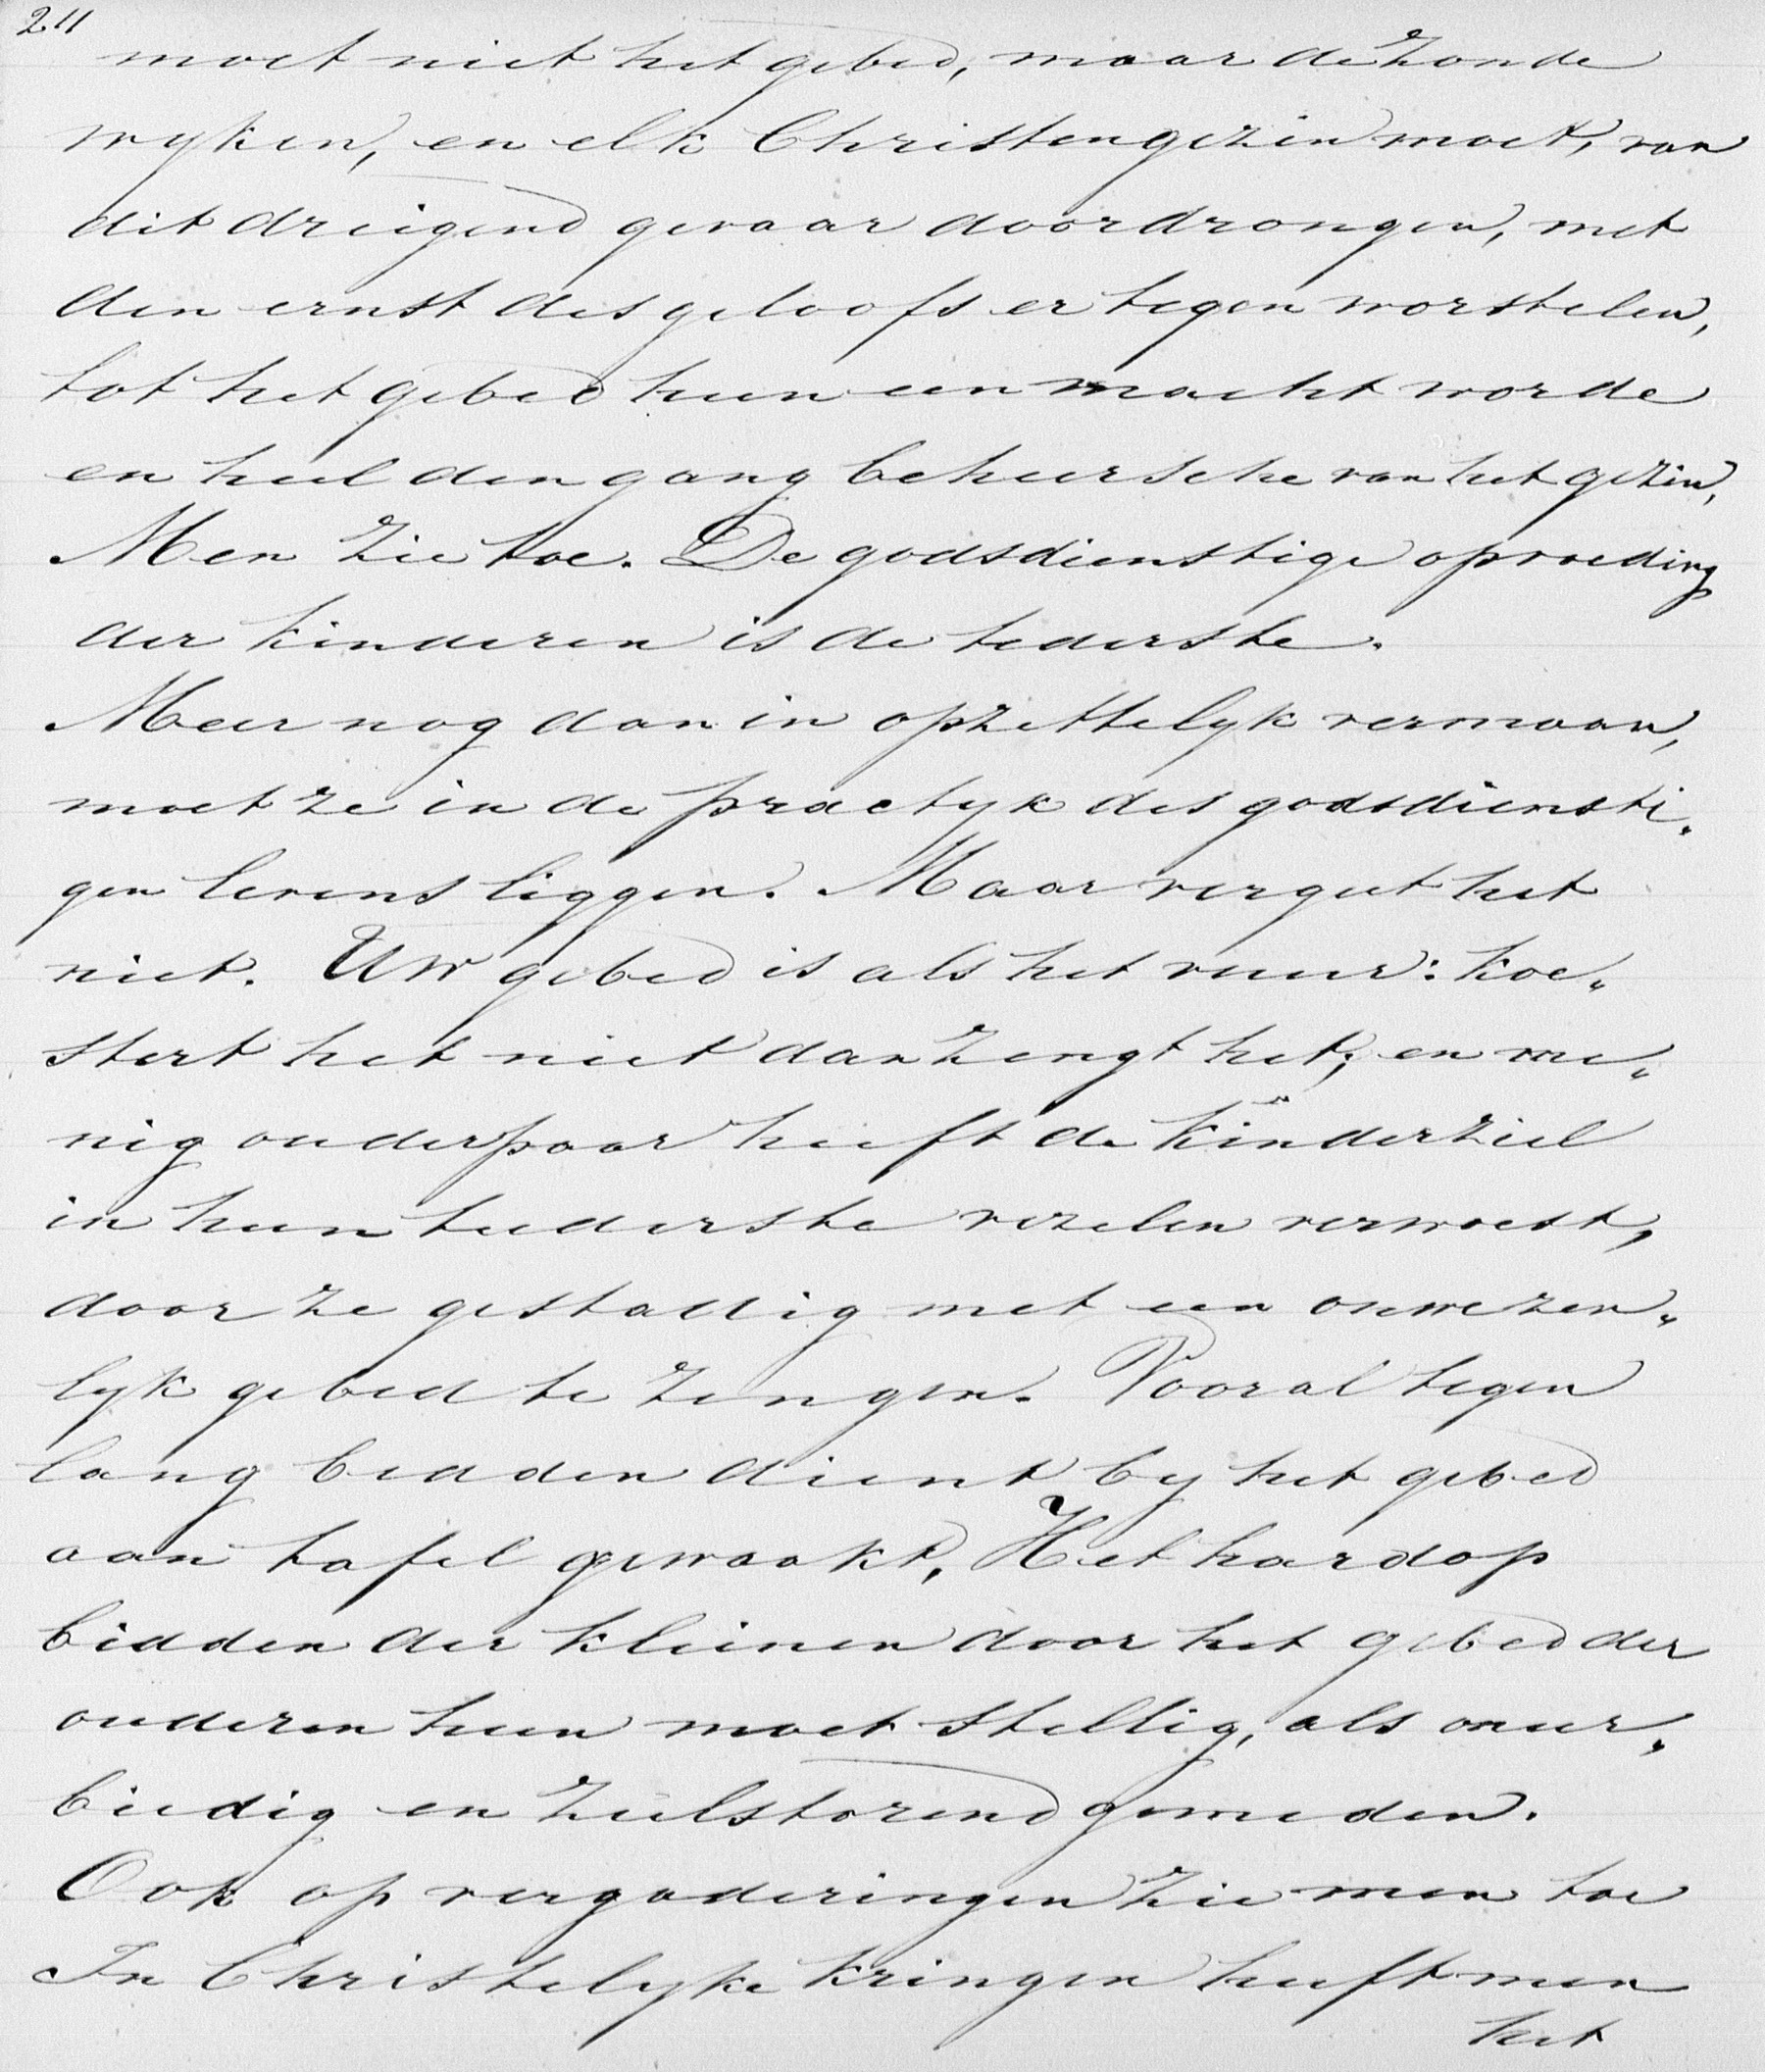 211
moet niet het gebed, maar de zonde
wyken, en elk Christengezin moet, van
dit dreigend gevaar doordrongen, met
den ernst des geloofs er tegen worstelen,
tot het gebed hun een macht worde
en heel den gang beheersche van het gezin,
Men zie toe. De godsdienstige opvoeding
der kinderen is de tederste.
Meer nog dan in opzettelyk vermaan,
moet ze in de practyk des godsdiensti„
gen levens liggen. Maar vergeet het
niet. Uw gebed is als het vuur: koe„
stert het niet dan zengt het; en me„
nig ouderpaar heeft de kinderziel
in hun teederste vezelen verwoest,
door ze gestadig met een onwezen„
lyk gebed te zengen. Vooral tegen
lang bedden dient by het gebed
aan tafel gewaakt, Het hardop
bidden der kleinen door het gebed der
ouderen heen moet stellig, als oneer„
biedig en zielstorend gemeden.
Ook op vergaderingen zie men toe
In Christelyke kringen heeft men
het